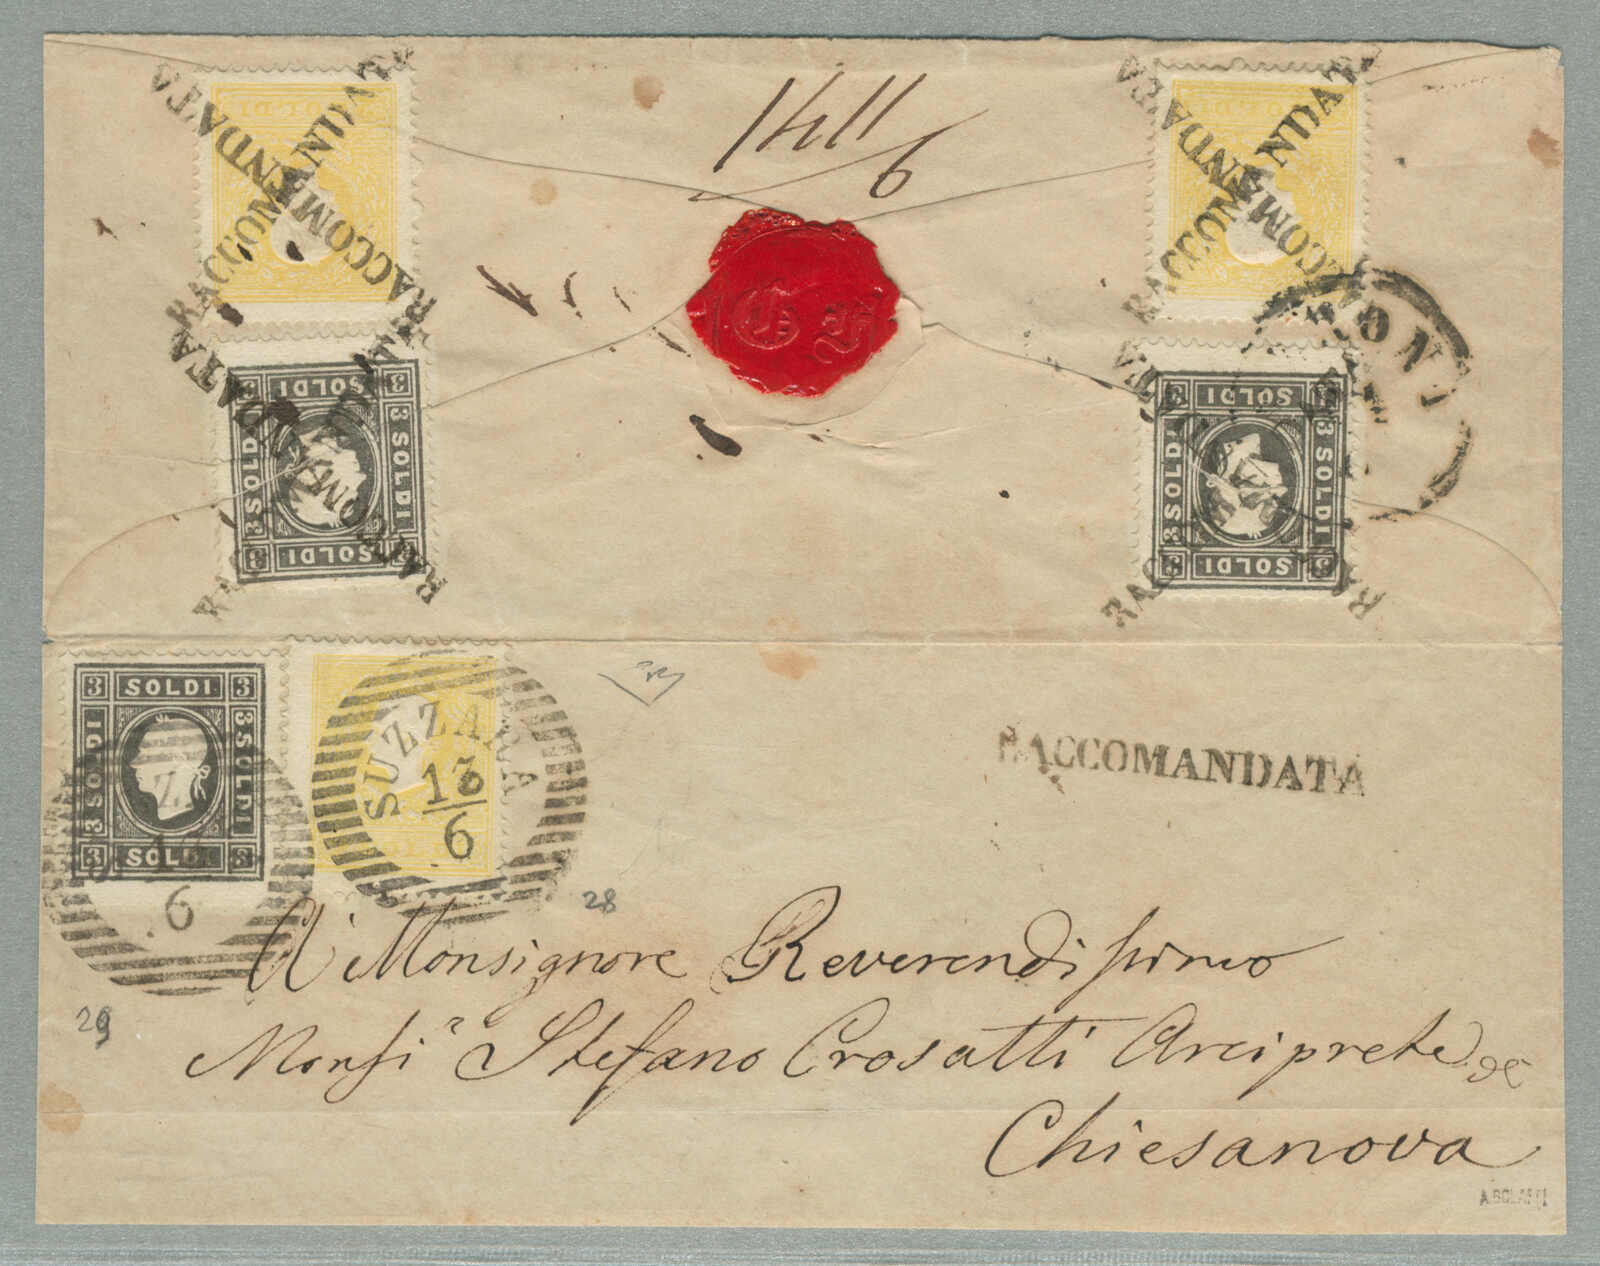 RACCOMANDATA
RACCOMANDATA
RACCOMANDATA
RACCOMANDATA
SOLDI
SOLDI
3 SOLDI 3
3 SOLDI
3 SOLDI
3 SOLDI 3
3 SOLDI 3
3 SOLDI
3 SOLDI
3 SOLDI 3
3 SOLDI 3
3 SOLDI
3 SOLDI
3 SOLDI 3
SUZZARA
13
6
6
RACCOMANDATA
28
A Monsignore Reverendissimo
29
Monsi.r Stefano Crosatti Arciprete di
Chiesanova